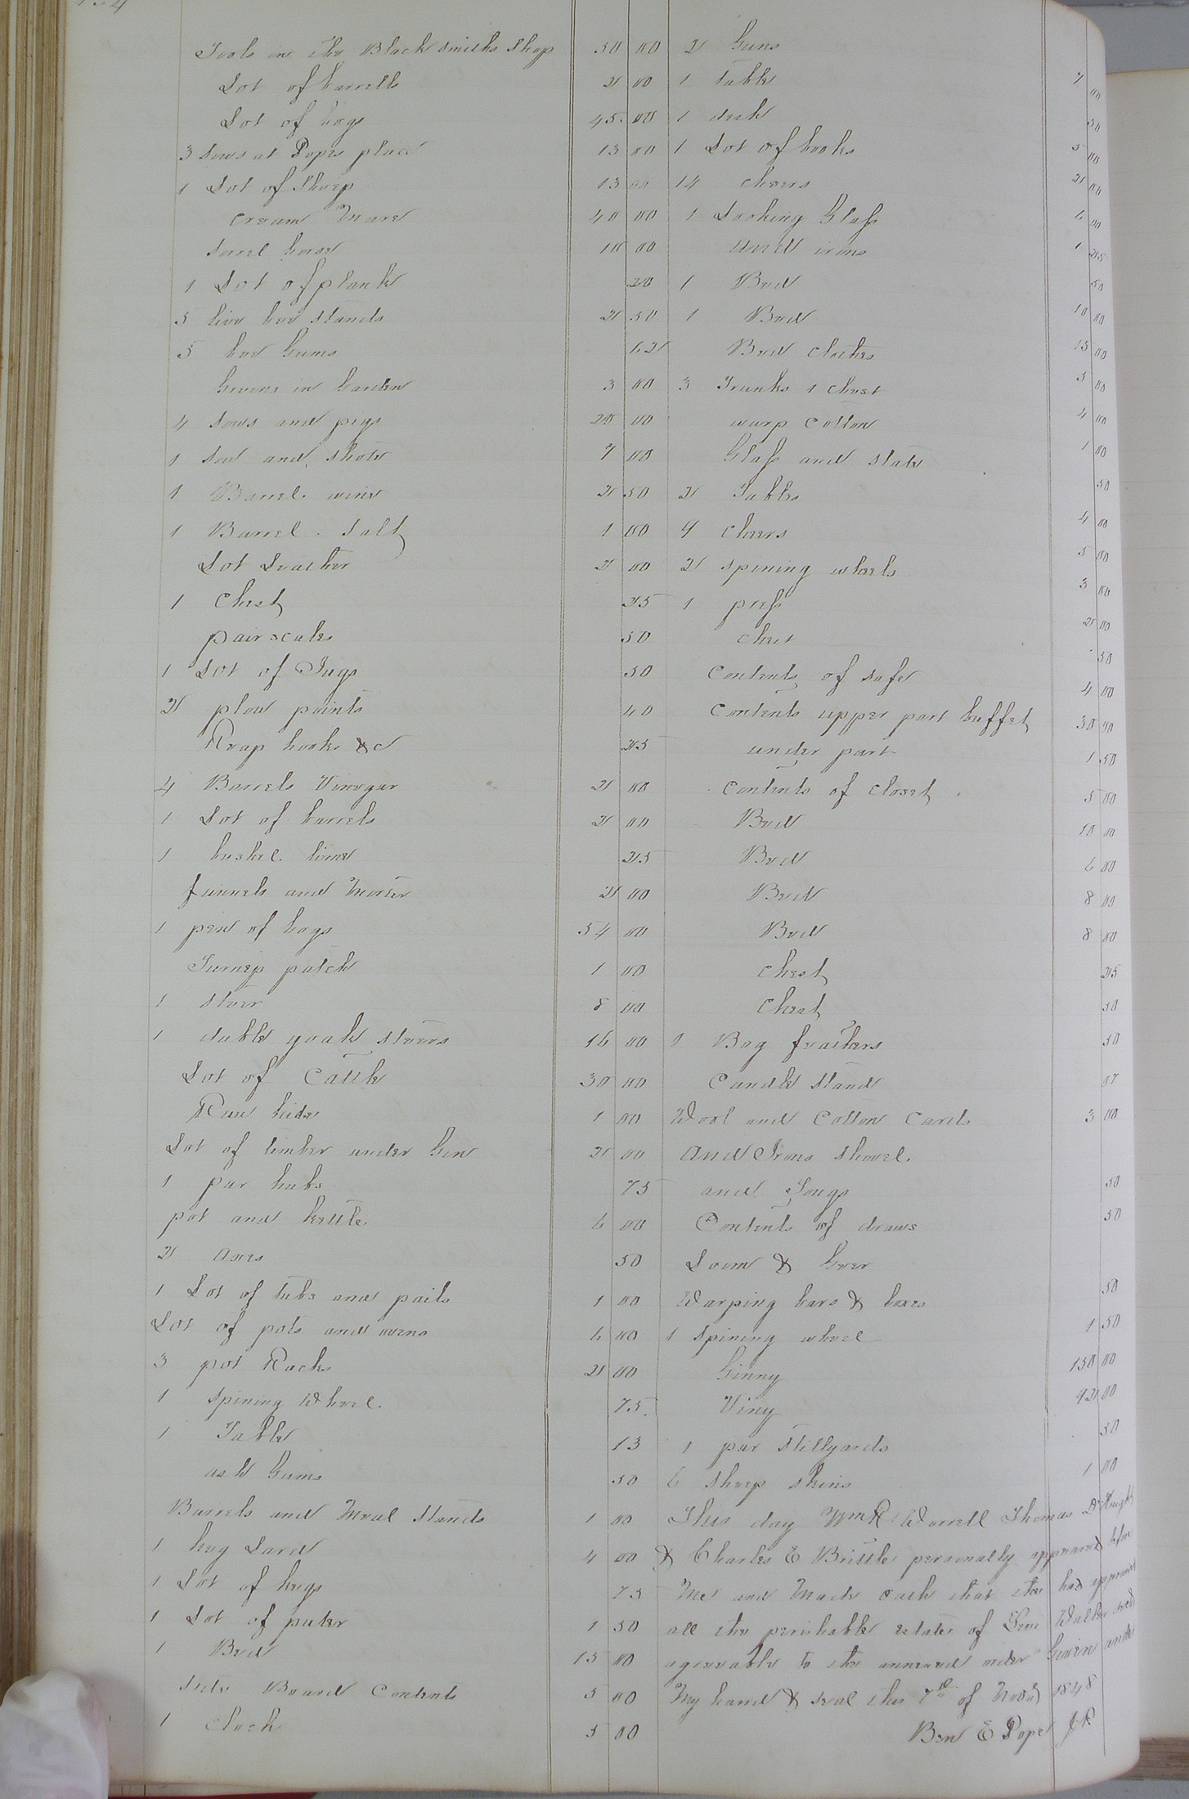 Tools in the Black Smiths Shop 50 00
Lot of barrells 2 00
Lot of hogs 45 00
3 Sows at Popes place 13 00
1 Lot of Sheep 13 00
Cream Mare 40 00
Sorrel horse 10 00
1 Lot of plank 20
5 live bee Stands 2 50
5 bee Gums 62
Greens in Garden 3 00
4 Sows and pigs 20 00
1 Sow and Shote 7 00
1 Barrel wine 2 50
1 Barrel Salt 1 00
Lot Leather 2 00
1 Chest 25
pair scales 50
1 Lot of Jugs 50
2 plow points 40
Reap hooks &c 25
4 Barrels Vinegar 2 00
1 Lot of barrels 2 00
1 bushel lime 25
funnels and Morter 2 00
1 pen of hogs 54 00
Turnep patch 1 00
1 Steer 8 00
1 duble yoak Steers 16 00
Lot of Cattle 30 00
Raw hides 1 00
Lot of timber under Gin 2 00
1 par hubs 75
pot and kettle 6 00
2 axes 50
1 Lot of tubs and pails 1 00
Lot of pots and ovens 6 00
3 pot Racks 2 00
1 Spining Wheel 75
1 Table 13
ash Gums 50
Barrels and Meal Stands 1 00
1 keg Lard 4 00
1 Lot of kegs 75
1 Lot of puter 1 50
1 Bed 15 00
Side Board Contents 5 00
1 Clock 5 00
2 Guns 7 00
1 Table 50
1 desk 5 00
1 Lot of books 2 00
14 cheirs 6 00
1 Looking Glass 1 25
And irons 50
1 Bed 10 00
1 Bed 15 00
Bed clothes 5 00
3 Trunks 1 chest 4 00
warp Cotton 1 00
Glass and slate 50
2 Tables 4 00
7 cheirs 5 00
2 Spining wheels 3 00
1 press 2 00
chest 50
Contents of safe 4 00
Contents upper part buffet 30 00
under part 1 50
Contents of closet 5 00
Bed 10 00
Bed 6 00
Bed 8 00
Bed 8 00
Chest 25
Chest 50
1 Bag feathers 50
Candle Stand
Wool and Cotton Cards 3 00
And Irons Shovel
and Tongs 50
Contents of draws 50
Loom & Gear
Warping bars & boxes 50
1 Spining wheel 1 50
Ginny 150 00
Viny 00
1 par Stillyards 50
6 Sheep Skins 1 00
This day Wm R Worrell Thomas Knight
& Charles E Brittle personally appeared before
Me and Made oath that the has
all the perishable estate of Walker
agreeable to the annexed order Given under
My hand & Seal this 7th of 1848
Ben E Pope J.P.